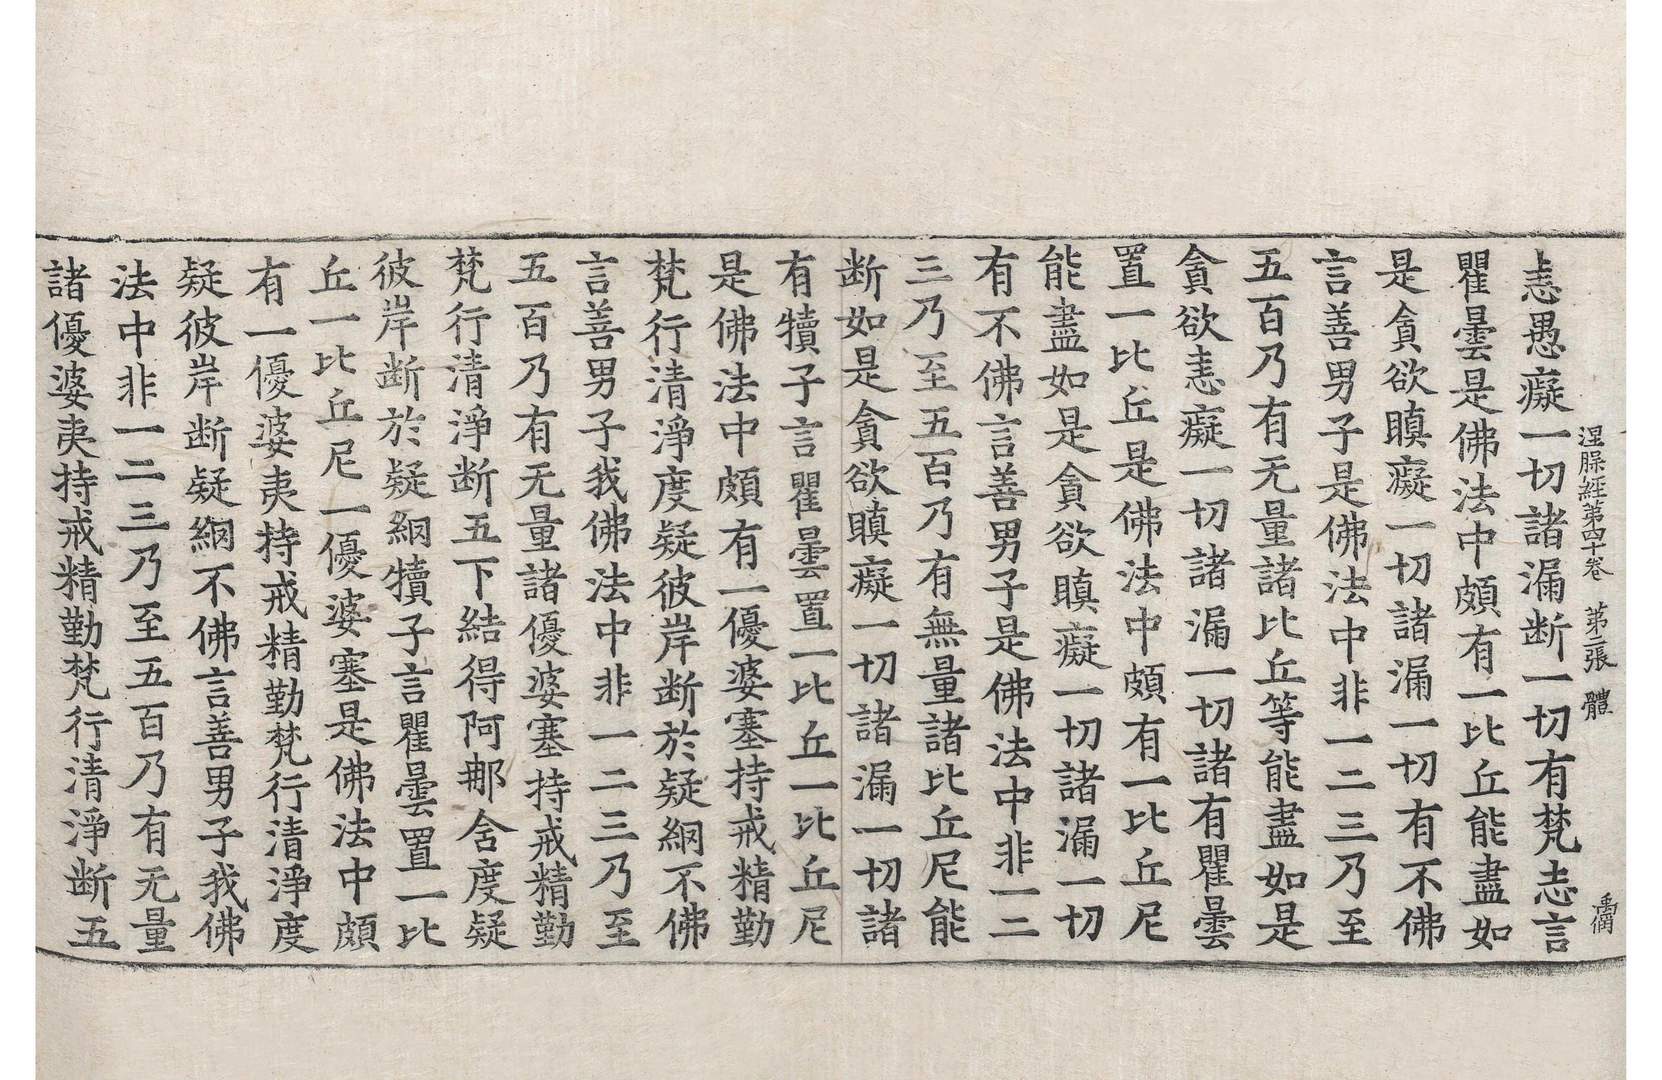 涅槃經第四十卷 第二張 體
恚愚癡一切諸漏断一切有梵志言
瞿曇是佛法中頗有一比丘能盡如
是貪欲瞋癡一切諸漏一切有不佛
言善男子是佛法中非一二三乃至
五百乃有无量諸比丘等能盡如是
貪欲恚癡一切諸漏一切諸有瞿曇
置一比丘是佛法中頗有一比丘尼
能盡如是貪欲瞋癡一切諸漏一切
有不佛言善男子是佛法中非一二
三乃至五百乃有無量諸比丘尼能
断如是貪欲瞋癡一切諸漏一切諸
有犢子言瞿曇置一比丘一比丘尼
是佛法中頗有一優婆塞持戒精勤
梵行清淨度疑彼岸断於疑網不佛
言善男子我佛法中非一二三乃至
五百乃有无量諸優婆塞持戒精勤
梵行清淨断五下結得阿那含度疑
彼岸断於疑網犢子言瞿曇置一比
丘一比丘尼一優婆塞是佛法中頗
有一優婆夷持戒精勤梵行清淨度
疑彼岸断疑網不佛言善男子我佛
法中非一二三乃至五百乃有无量
諸優婆夷持戒精勤梵行清淨断五